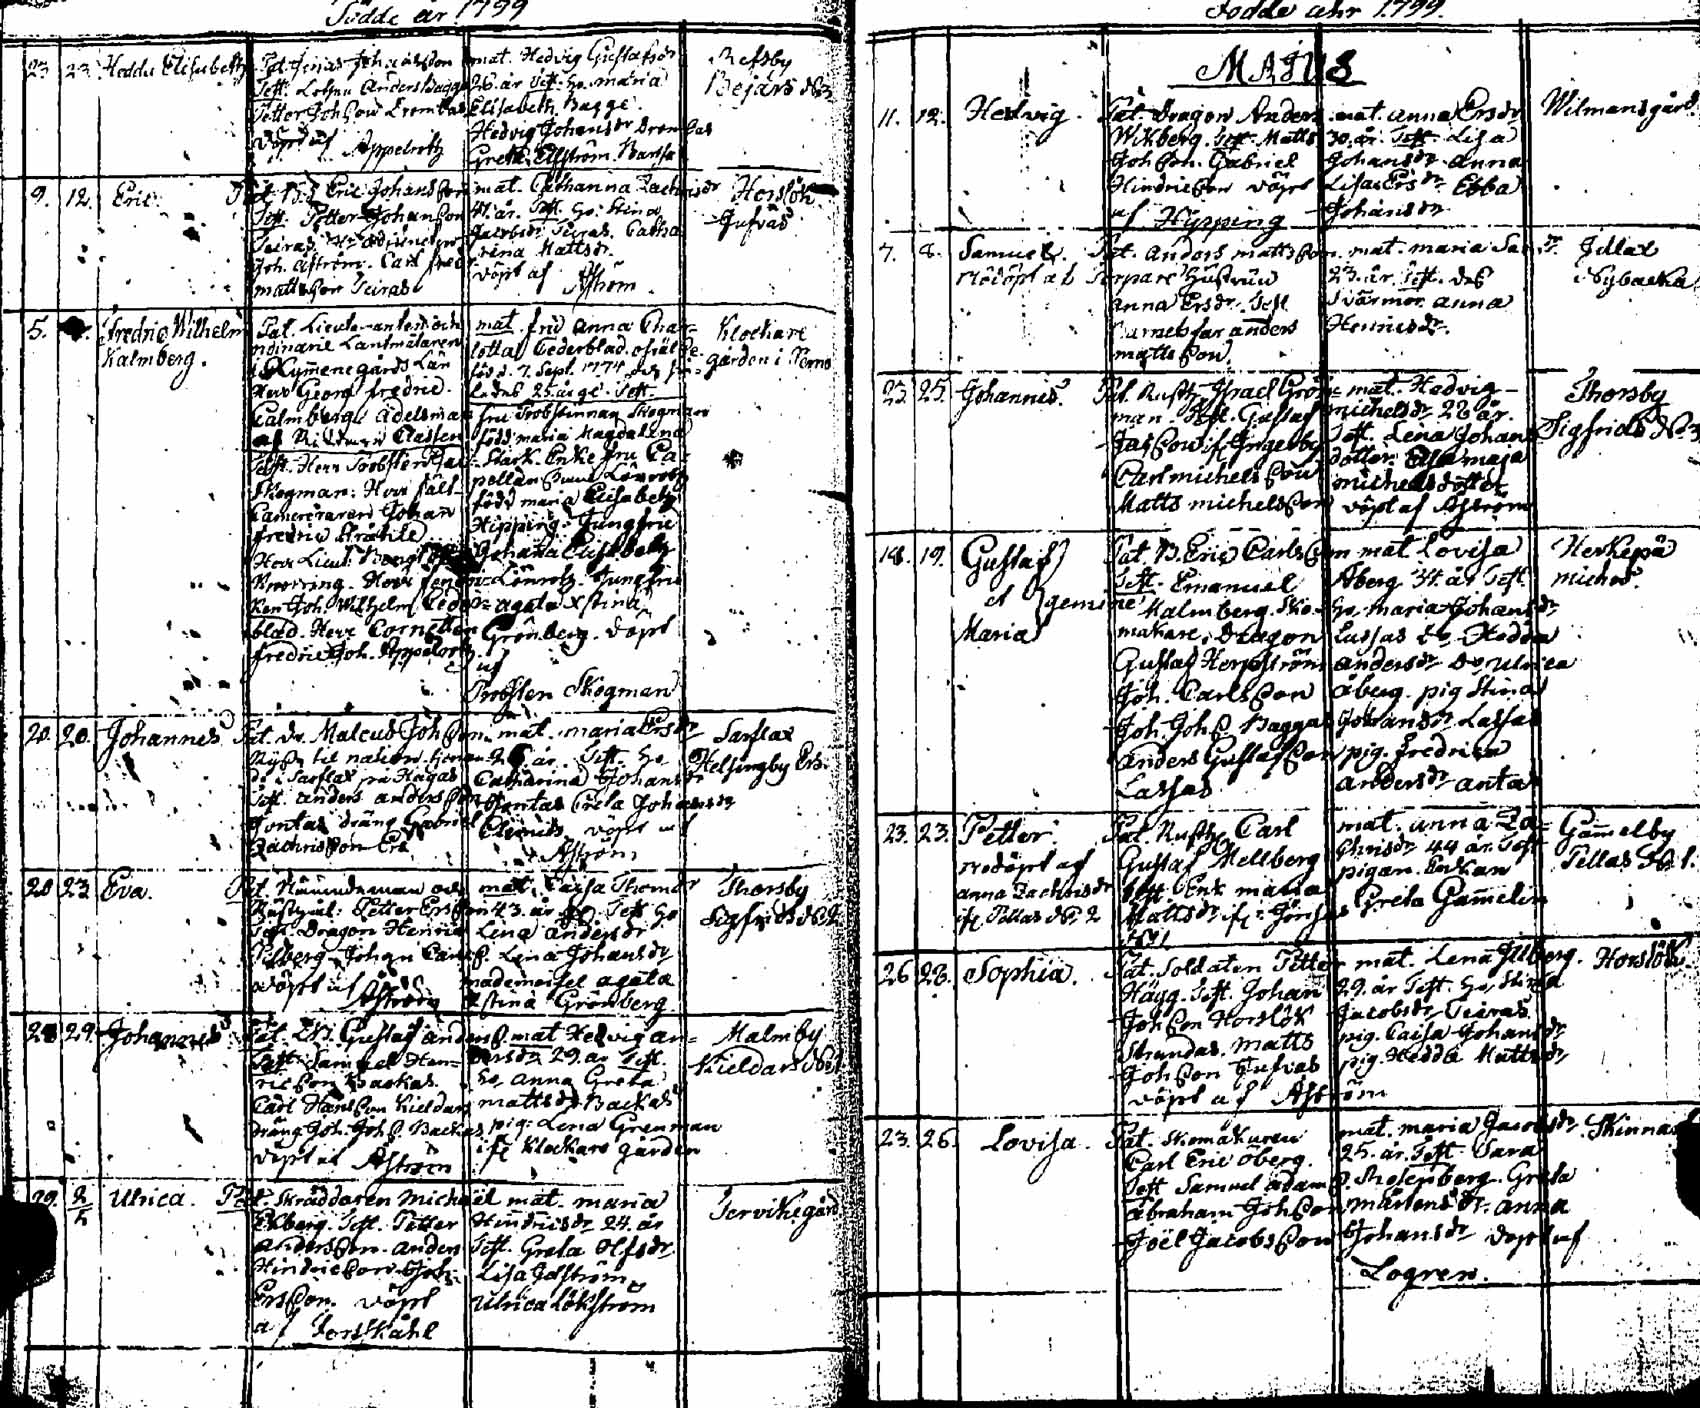 Födde år 1799
23. 23. Hedda Elisabeth
Pat. Jonas Johansson
mat. Hedvig Gustafsdr
26. år. Test. ho. maria
Elisabeth Bagge.
Hedvig Johansdr Drombas
Greta Elfström
döpt af Appelroth
Refsby
Bejars No 3
9. 12. Eric.
Pat. B.d Eric Johansson
Test. Petter Johansson
Teiras.
Joh. Aström. Carl Fred
mattsson Teiras
mat. Cathanna Zachrisdr
41. år. Test. ho. Stina
Jacobsdr Teiras. Catha
rina Mattsdr.
döpt af Aström.
Horslök
Gufvas
5.
Fredric Wilhelm
Kalmberg.
Pat. Lieutenanten och
ordinarie Lantmätaren
i Kymmenegårds Län
Herr Georg Fredric
Calmberg. Adelsman
af Riddare Classen
Test. Herr Probsten
Skogman. Herr Fält-
Camereraren Johan
Fredric Stråhle
Herr Lieut. Bengt
Knorring. Herr Fend-
ken Joh. Wilhelm Ceder-
blad. Herr Cornetten
Fredric Joh. Appelroth
mat. fru Anna Char-
lotta Cederblad. ofrälse
född d. 7. Sept. 1774
25. år ge. Test.
fru Probstinnan Skogman
född Maria Magdalena
Stark. Enke fru Ca-
pellanskan Lönroth
född maria Elisabeth
Hipping. Jungfru
Johana Elisabeth
Lönroth. Jungfru
agata Xstina
Grönberg. döpt
af
Probsten Skogman
Klockare
gården i Perno
20. 20. Johannes
Pat. Dr. Malcus Johsson
Test. anders andersson
Jontas dräng Gabriel
Zachrisson Ers
mat. maria Ersdr
26 år. Test. ho
Catharina Johansdr
Jontas Greta Johansdr
döpt af
Aström
Sarflax
Helsingby Ers.
20 23 Eva.
Pat. Nämndeman och
Rusthål: Petter Ersson
Test. Dragon Henric
Johan
döpt af Aström
mat. Caisa Thomasdr
43. år. Test. ho
Lena andersdr
Lena Johansdr
mademoisel agata
Xstina Grönberg
Thorsby
Sigfrids No 2
28 29. Johannes
Pat. B. Gustaf anderss.
Test. Samuel Hen-
ricsson Backas.
Carl Hansson Kieldars
dräng Joh. Johs. Backas
döpt af Aström
mat Hedvig an-
dersdr 29. år Test.
ho. Anna Greta
mattsdr Backas
pig. Lena Grenman
ifr. Klockars gården
Malmby
Kieldars No 1
29. 2/5 Ulrica.
Pat. Skräddaren Michael
Ekberg. Test. Petter
Andersson. Anders
Hindricsson. Joh.
Ersson. döpt
af Forsskåhl
mat. maria
Hindricsdr. 24. år
Test. Greta Olfsdr.
Lisa Idström
Ulrica Lökström
Tervikegård
Födde ahr 1799.
MAJUS
11. 12. Hedvig.
Pat. Dragon Anders
Wikberg. Test. Matts
Johsson. Gabriel
Hindricsson döpt
af Hypping
mat. anna Ersdr
30. år. Test. Lisa
Johansdr. anna
Lisa Ersdr. Ebba
Johansdr
Wilmansgård.
7. 8. Samuel.
Nödöpt af
Pat. Anders mattsson.
Torpare hustrun
Anna Ersdr. Test
Barnets far anders
mattsson.
mat. maria
23. år. Test. des
svärmor anna
Henricsdr.
Jdlax
i Nybacka
23. 25. Johannes.
Pat. Rusth. Israel Grön-
man. Test. Gustaf
Jacsson if. Ingerby
Carl michelsson
Matts michelsson
mat. Hedvig
michelsdr. 28 år.
Test. Lena Johans
dotter. Elsa maja
michelsdotter
döpt af Aström
Thorsby
Sigfrids No 3
18. 19. Gustaf
et gemine
Maria
Pat. B. Eric Carlsson
Test. Emanuel
Malmberg. Sko-
makare. Dragon
Gustaf Herpström
Joh. Carlsson
Joh. Johs. Baggas
Anders Gustafsson
Lassas
mat. Lovisa
Åberg 34. år Test.
ho. maria Johansdr
Lassas do. Hedda
andersdr. Do Ulrica
åberg. pig Stina
Johansdr. Lassas
pig. Fredrica
andersdr. antas
Herkepä
michos.
23. 23. Petter
Nödöpt af
anna Zachrisdr
if. Pellas No 2
Pat. Rusth. Carl
Gustaf Mellberg
Test Enk maria
Mattsdr.
mat. anna Za-
chrisdr 44 år. Test
pigan. Enkan
Greta Gamelin
Gamelby
Pellas No 1.
26 28. Sophia.
Pat. Soldaten Petter
Hägg. Test. Johan
Johsson Horslök
Strandas. Matts
Johsson Gufvas
döpt af Aström
mat. Lena Illberg.
29. år Test. ho. Stina
Jacobsdr. Teiras.
pig. Caisa Johansdr
pig. Hedda Mattsdr
Horslök
23. 26. Lovisa.
Pat. Skomakaren
Carl Eric Öberg.
Test Samuel Adams.
Abraham Johsson
Joël Jacobsson
mat. maria Jacobsdr.
25. år. Test. Sara
Stolpenberg. Greta
mårtensdr. anna
Johansdr döpt af
Logren.
Skinnas